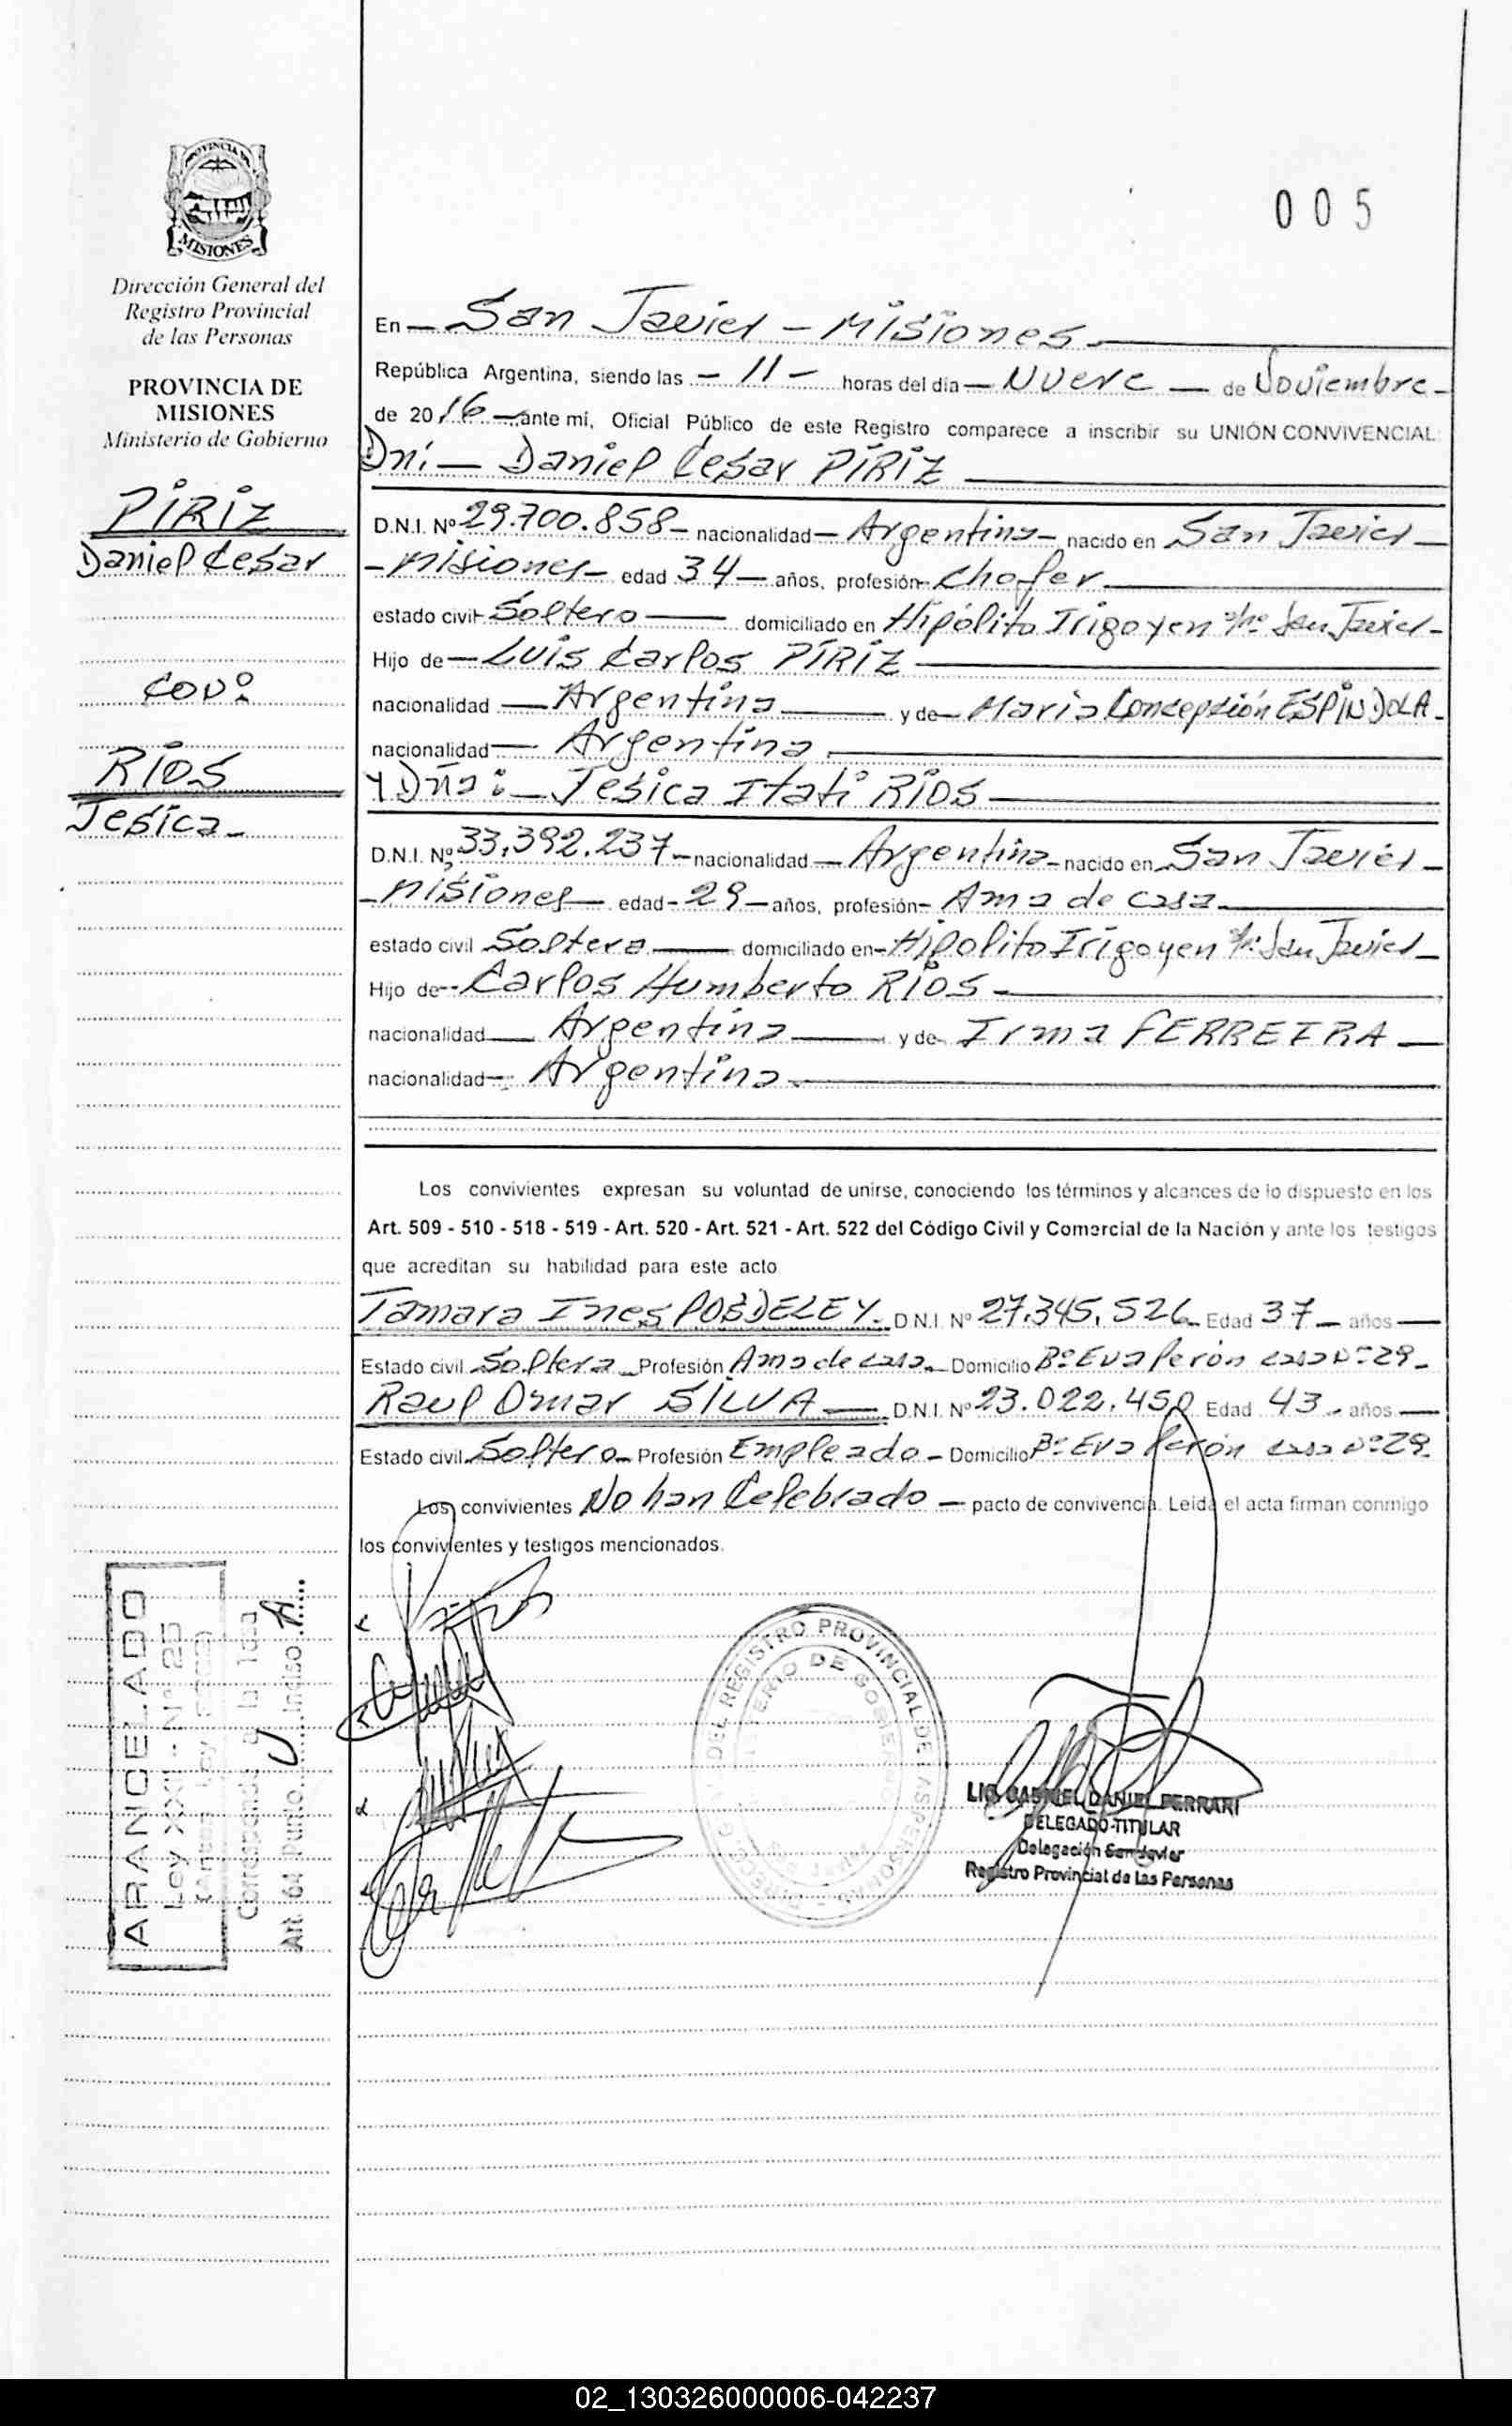 PROVINCIA DE
MISIONES
005
Dirección General del
Registro Provincial
de las Personas
PROVINCIA DE
MISIONES
Ministerio de Gobierno
PÍRIZ
Daniel Cesar
con:
RÍOS
Jesica-
En - San Javier - Misiones.
República Argentina, siendo las - 11 - horas del día - Nueve - de Noviembre -
de 2016 - ante mí, Oficial Público de este Registro comparece a inscribir su UNIÓN CONVIVENCIAL:
Dn: - Daniel Cesar PÍRIZ
D.N.I. Nº 29.700.858 - nacionalidad - Argentina - nacido en San Javier -
- Misiones - edad 34 - años, profesión - Chofer.
estado civil - Soltero - domiciliado en Hipólito Irigoyen San Javier -
Hijo de - Luis Carlos PÍRIZ
nacionalidad - Argentina y de - Maria Concepción ESPÍNDOLA -
nacionalidad - Argentina.
Y Dña: - Jesica Itatí RÍOS
D.N.I. Nº 33.392.237 - nacionalidad - Argentina - nacido en San Javier -
- Misiones - edad - 29 - años, profesión - Ama de casa.
estado civil Soltera domiciliado en - Hipolito Irigoyen San Javier -
Hijo de - Carlos Humberto RÍOS -
nacionalidad Argentina y de - Irma FERREIRA -
nacionalidad - Argentina.
Los convivientes expresan su voluntad de unirse, conociendo los términos y alcances de lo dispuesto en los
Art. 509 - 510 - 518 - 519 - Art. 520 - Art. 521 - Art. 522 del Código Civil y Comercial de la Nación y ante los testigos
que acreditan su habilidad para este acto
Tamara Ines POBDELEY. D.N.I. Nº 27.345.526 - Edad 37 - años
Estado civil Soltera - Profesión Ama de casa. Domicilio Bº Eva Perón casa Nº 29 -
Raul Omar SILVA - D.N.I. Nº 23.022.450 Edad 43 - años
Estado civil Soltero - Profesión Empleado - Domicilio Bº Eva Perón casa Nº 29.
Los convivientes No han Celebrado - pacto de convivencia. Leída el acta firman conmigo
los convivientes y testigos mencionados.
ARANCELADO
Ley XXII - Nº 25
Corresponde a la Tasa
Art. 64 Punto Inciso A
DEL REGISTRO PROVINCIAL DE LAS PERSONAS
MINISTERIO DE GOBIERNO
LIC. GABRIEL DANIEL FERRARI
DELEGADO TITULAR
Delegación San Javier
Registro Provincial de las Personas
02_130326000006-042237